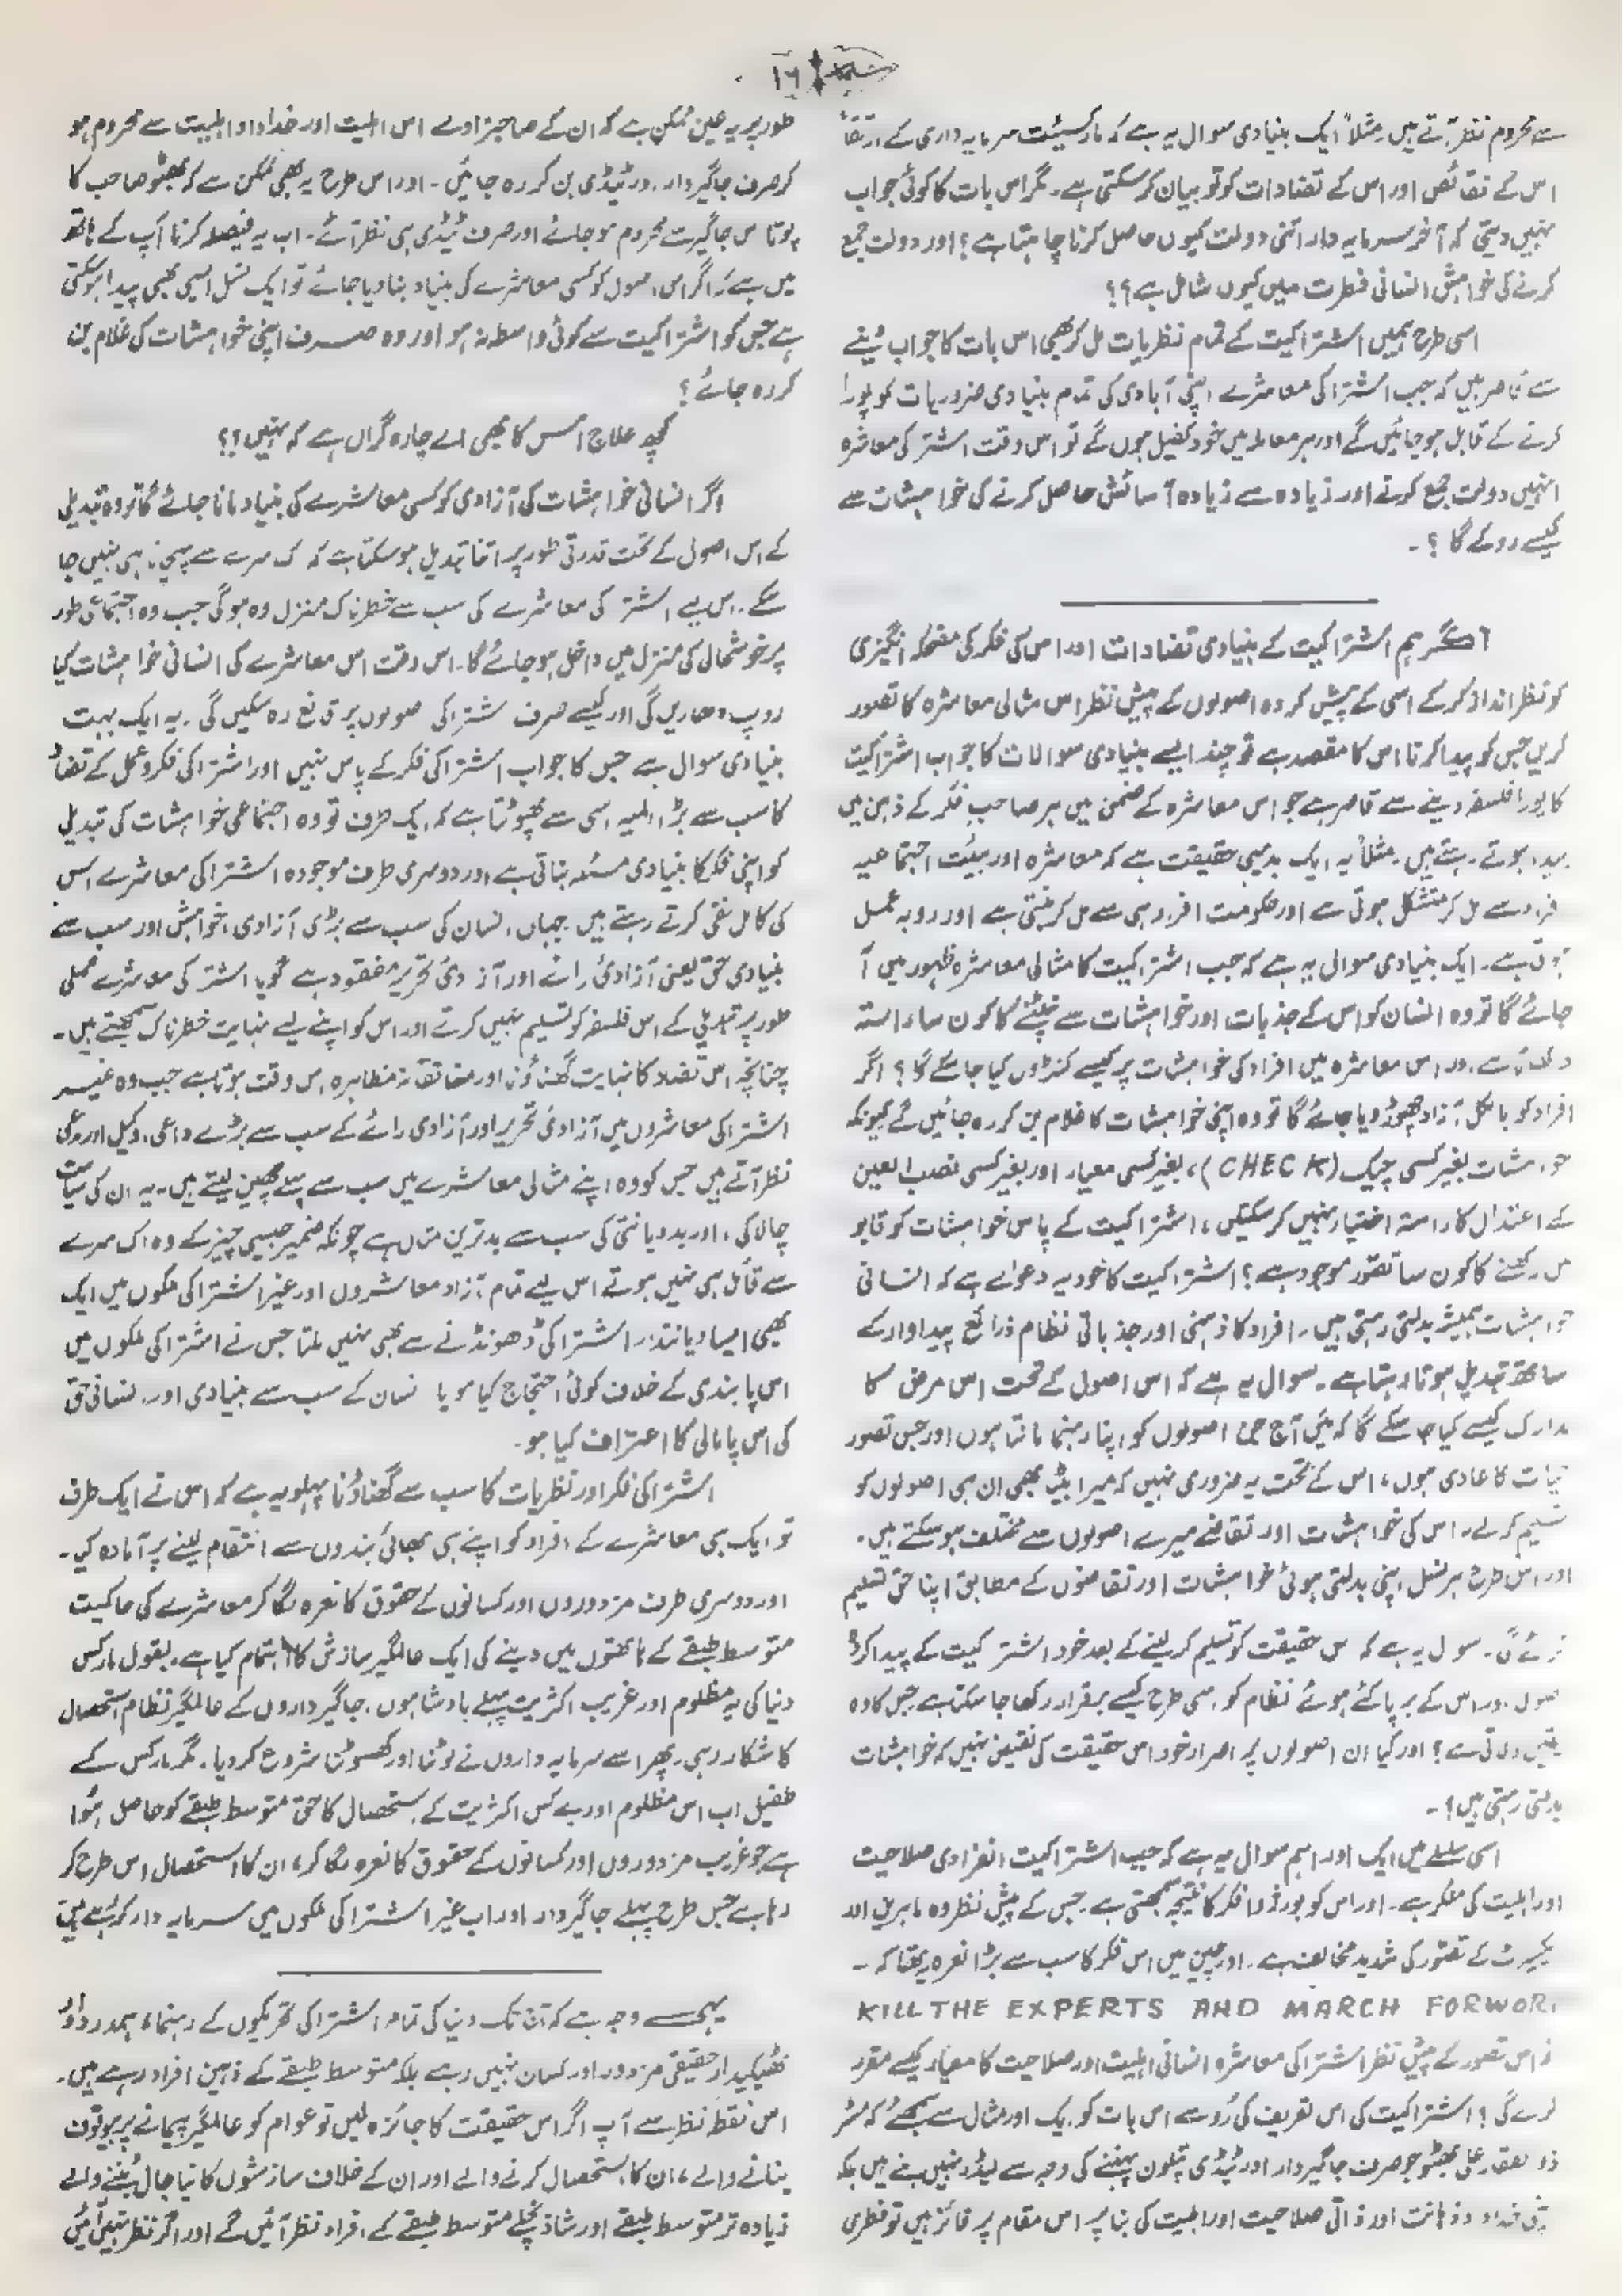 ۱۶
سے محروم نظر آتے ہیں۔ مثلاً ایک بنیادی سوال یہ ہے کہ مارکسیئت سرمایہ داری کے ارتقأ
اس کے نقائص اور اس کے تضادات کو تو بیان کرسکتی ہے۔ مگر اس بات کا کوئی جواب
نہیں دیتی کہ آخر سرمایہ دار اتنی دولت کیوں حاصل کرنا چاہتا ہے؟ اور دولت جمع
کرنے کی خواہش انسانی فطرت میں کیوں شامل ہے؟؟
اسی طرح ہمیں اشتراکیت کے تمام نظریات مل کر بھی اس بات کا جواب دینے
سے قاصر ہیں کہ جب اشتراکی معاشرے اپنی آبادی کی تمام بنیادی ضروریات کو پورا
کرنے کے قابل ہو جائیں گے اور ہر معاملہ میں خود کفیل ہوں گے تو اس وقت اشتراکی معاشرہ
انہیں دولت جمع کرنے اور زیادہ سے زیادہ آسائش حاصل کرنے کی خواہشات سے
کیسے روکے گا ؟ ۔
اگر ہم اشتراکیت کے بنیادی تضادات اور اس کی فکر کی مضحکہ انگیزی
کو نظر انداز کرکے اسی کے پیش کردہ اصولوں کے پیش نظر اس مثالی معاشرہ کا تصور
کریں جس کو پیدا کرنا اس کا مقصد ہے تو چند ایسے بنیادی سوالات کا جواب اشتراکیت
کا پورا فلسفہ دینے سے قاصر ہے جو اس معاشرہ کے ضمن میں ہر صاحبِ فکر کے ذہن میں
پیدا ہوتے رہتے ہیں۔ مثلاً یہ ایک بدیہی حقیقت ہے کہ معاشرہ اور ہیئت اجتماعیہ
افراد سے مل کر متشکل ہوتی ہے اور حکومت افراد ہی سے مل کر بنتی ہے اور روبہ عمل
ہوتی ہے۔ ایک بنیادی سوال یہ ہے کہ جب اشتراکیت کا مثالی معاشرہ ظہور میں آ
جائے گا تو وہ انسان کو اس کے جذبات اور خواہشات سے نپٹنے کا کون سا راستہ
دکھائے گا اور اس معاشرہ میں افراد کی خواہشات پر کیسے کنٹرول کیا جا سکے گا ؟ اگر
افراد کو بالکل آزاد چھوڑ دیا جائے گا تو وہ اپنی خواہشات کا غلام بن کر رہ جائیں گے کیونکہ
خواہشات بغیر کسی چیک (CHECK)، بغیر کسی معیار اور بغیر کسی نصب العین
کے اعتدال کا راستہ اختیار نہیں کر سکتیں، اشتراکیت کے پاس خواہشات کو قابو
میں رکھنے کا کون سا تصور موجود ہے؟ اشتراکیت کا خود یہ دعوٰے ہے کہ انسانی
خواہشات ہمیشہ بدلتی رہتی ہیں۔ افراد کا ذہنی اور جذباتی نظام ذرائع پیداوار کے
ساتھ تبدیل ہوتا رہتا ہے۔ سوال یہ ہے کہ اس اصول کے تحت اس مرض کا
مدارک کیسے کیا جا سکے گا کہ میں آج جن اصولوں کو اپنا رہنما مانتا ہوں اور جس تصورِ
حیات کا عادی ہوں، اس کے تحت یہ ضروری نہیں کہ میرا بیٹا بھی ان ہی اصولوں کو
تسلیم کرلے۔ اس کی خواہشات اور تقاضے میرے اصولوں سے مختلف ہو سکتے ہیں۔
اور اس طرح ہر نسل اپنی بدلتی ہوئی خواہشات اور تقاضوں کے مطابق اپنا حق تسلیم
کرائے گی۔ سوال یہ ہے کہ اس حقیقت کو تسلیم کر لینے کے بعد خود اشتراکیت کے پیدا کردہ
اصول اور اس کے برپا کئے ہوئے نظام کو اسی طرح کیسے برقرار رکھا جا سکتا ہے جس کا وہ
یقین دلاتی ہے؟ اور کیا ان اصولوں پر اصرار خود اس حقیقت کی نقیض نہیں کہ خواہشات
بدلتی رہتی ہیں؟ ۔
اسی سلسلے میں ایک اور اہم سوال یہ ہے کہ جب اشتراکیت انفرادی صلاحیت
اور اہلیت کی منکر ہے۔ اور اس کو بورژوا فکر کا نتیجہ سمجھتی ہے۔ جس کے پیش نظر وہ ماہرین اور
ایکسپرٹ کے تصور کی شدید مخالف ہے۔ اور چین میں اس فکر کا سب سے بڑا نعرہ یہ تھا کہ ۔
KILL THE EXPERTS AND MARCH FORWOR
تو اس تصور کے پیش نظر اشتراکی معاشرہ انسانی اہلیت اور صلاحیت کا معیار کیسے مقرر
کرے گی؟ اشتراکیت کی اس تعریف کی رُو سے اس بات کو ایک اور مثال سے سمجھئے کہ مسٹر
ذوالفقار علی بھٹو جو صرف جاگیردار اور ٹیڈی پتلون پہننے کی وجہ سے لیڈر نہیں بنے ہیں بلکہ
اپنی خداداد ذہانت اور ذاتی صلاحیت اور اہلیت کی بنا پر اس مقام پر فائز ہیں تو فطری
طور پر یہ عین ممکن ہے کہ ان کے صاحبزادے اس اہلیت اور خداداد اہلیت سے محروم ہو
کر صرف جاگیردار اور ٹیڈی بن کر رہ جائیں۔ اور اس طرح یہ بھی ممکن ہے کہ بھٹو صاحب کا
پوتا اس جاگیر سے محروم ہو جائے اور صرف ٹیڈی ہی نظر آئے۔ اب یہ فیصلہ کرنا آپ کے ہاتھ
میں ہے کہ اگر اس اصول کو کسی معاشرے کی بنیاد بنا دیا جائے تو ایک نسل ایسی بھی پیدا ہوسکتی
ہے جس کو اشتراکیت سے کوئی واسطہ نہ ہو اور وہ صرف اپنی خواہشات کی غلام بن
کر رہ جائے ؟
کچھ علاج اس کا بھی اے چارہ گراں ہے کہ نہیں؟؟
اگر انسانی خواہشات کی آزادی کو کسی معاشرے کی بنیاد مانا جائے گا تو وہ تبدیلی
کے اس اصول کے تحت قدرتی طور پر اتنا تبدیل ہو سکتا ہے کہ اک سرے سے پہچانا ہی نہیں جا
سکے۔ اس لیے اشتراکی معاشرے کی سب سے خطرناک منزل وہ ہوگی جب وہ اجتماعی طور
پر خوشحالی کی منزل میں داخل ہو جائے گا۔ اس وقت اس معاشرے کی انسانی خواہشات کیا
روپ دھاریں گی اور کیسے صرف اشتراکی اصولوں پر قانع رہ سکیں گی۔ یہ ایک بہت
بنیادی سوال ہے جس کا جواب اشتراکی فکر کے پاس نہیں اور اشتراکی فکر و عمل کے تضاد
کا سب سے بڑا المیہ اسی سے پھوٹتا ہے کہ ایک طرف تو وہ اجتماعی خواہشات کی تبدیلی
کو اپنی فکر کا بنیادی مسئلہ بناتی ہے اور دوسری طرف موجودہ اشتراکی معاشرے اس
کی کامل نفی کرتے رہتے ہیں۔ جہاں انسان کی سب سے بڑی آزادی، خواہش اور سب سے
بنیادی حق یعنی آزادیٔ رائے اور آزادیٔ تحریر مفقود ہے گویا اشتراکی معاشرے عملی
طور پر تبدیلی کے اس فلسفہ کو تسلیم نہیں کرتے اور اس کو اپنے لیے نہایت خطرناک سمجھتے ہیں۔
چنانچہ اس تضاد کا نہایت گھناؤنا اور منافقانہ مظاہرہ اس وقت ہوتا ہے جب وہ غیر
اشتراکی معاشروں میں آزادیٔ تحریر اور آزادی رائے کے سب سے بڑے داعی، وکیل اور مدعی
نظر آتے ہیں جس کو وہ اپنے مثالی معاشرے میں سب سے پہلے چھین لیتے ہیں۔ یہ ان کی سیاست
چالاکی، اور بددیانتی کی سب سے بدترین مثال ہے چونکہ ضمیر جیسی چیز کے وہ اک سرے
سے قائل ہی نہیں ہوتے اس لیے تمام آزاد معاشروں اور غیر اشتراکی ملکوں میں ایک
بھی ایسا دیانتدار اشتراکی ڈھونڈنے سے بھی نہیں ملتا جس نے اشتراکی ملکوں میں
اس پابندی کے خلاف کوئی احتجاج کیا ہو یا انسان کے سب سے بنیادی اور انسانی حق
کی اس پامالی کا اعتراف کیا ہو۔
اشتراکی فکر اور نظریات کا سب سے گھناؤنا پہلو یہ ہے کہ اس نے ایک طرف
تو ایک ہی معاشرے کے افراد کو اپنے ہی بھائی بندوں سے انتقام لینے پر آمادہ کیا۔
اور دوسری طرف مزدوروں اور کسانوں کے حقوق کا نعرہ لگا کر معاشرے کی حاکمیت
متوسط طبقے کے ہاتھوں میں دینے کی ایک عالمگیر سازش کا اہتمام کیا ہے۔ بقول مارکس
دنیا کی یہ مظلوم اور غریب اکثریت پہلے بادشاہوں، جاگیرداروں کے عالمگیر نظام استحصال
کا شکار رہی۔ پھر اسے سرمایہ داروں نے لوٹنا اور کھسوٹنا شروع کردیا۔ مگر مارکس کے
طفیل اب اس مظلوم اور بے کس اکثریت کے استحصال کا حق متوسط طبقے کو حاصل ہُوا
ہے جو غریب مزدوروں اور کسانوں کے حقوق کا نعرہ لگا کر، ان کا استحصال اس طرح کر
رہا ہے جس طرح پہلے جاگیردار اور اب غیر اشتراکی ملکوں میں سرمایہ دار کر رہے ہیں
یہی وجہ ہے کہ آج تک دنیا کی تمام اشتراکی تحریکوں کے رہنما، ہمدرد اور
ٹھیکیدار حقیقی مزدور اور کسان نہیں رہے بلکہ متوسط طبقے کے ذہین افراد رہے ہیں۔
اس نقطۂ نظر سے آپ اگر اس حقیقت کا جائزہ لیں تو عوام کو عالمگیر پیمانے پر بیوقوف
بنانے والے، ان کا استحصال کرنے والے اور ان کے خلاف سازشوں کا نیا جال بُننے والے
زیادہ تر متوسط طبقے اور شاذ نچلے متوسط طبقے کے افراد نظر آئیں گے اور اگر نظر نہیں آئیں